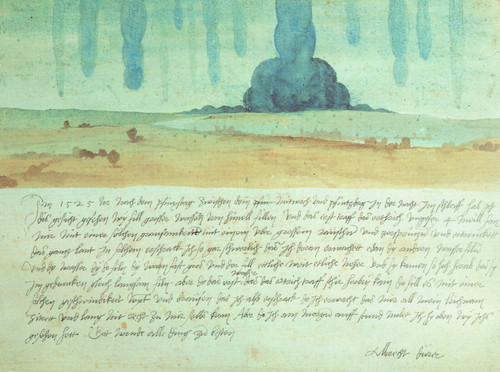 Im 1525 Jor nach dem pfinxstag zwischen dem mitwoch und pfintzdag in der nacht im schlaff hab ich
dis gesicht gesehen wy fill grosser wassern vom himell fillen Und das erst traff das erthrich ungefer 4 meill fan
mir mit einer solchen grausamkeitt mit einem uber grossem raüschn und zersprützn und ertrenckett
das gantz lant In solchem erschrack ich so gar schwerlich das ich doran erwachett e dan dy andern wasser filn
Und dy wasser dy do filn dy warn fast gros und der fill ettliche weit etliche neher und sy kamen so hoch herab das sy
im gedancken gleich langsam filn aber do das erst wasser das das ertrich traff schir herbey kam do fill es mit einer
solchen geschwindikeit wynt und braüsen das ich also erschrack do ich erwacht das mir all mein leichnam
zitrett und lang nit recht zu mir selbs kam Aber do ich am morgen auff stund molet ich hy oben wy ichs
gesehen hett Got wende alle ding zu besten
Albrecht dürer